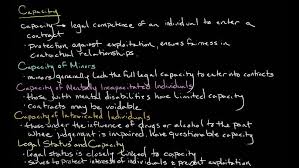 Capacity
Capacity → legal competence of an individual to enter a
contract
• protection against exploitation, ensures fairness in
contractual relationships.
Capacity of Minors
• minors generally lack the full legal capacity to enter into contracts
Capacity of Mentally Incapacitated Individuals
• those with mental disabilities have limited capacity
Contracts may be voidable.
Capacity of Intoxicated Individuals
• those under the influence of drugs or alcohol to the point
where judgement is impaired, have questionable capacity
Legal Status and Capacity
• Legal Status is closely linked to capacity
• serves to protect interests of individuals & prevent exploitation